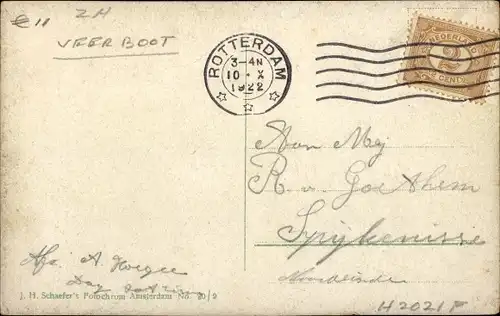 € 11
ZH
VEERBOOT
ROTTERDAM
3-4N
10 X
1922
NEDERLAND
2
CENT
Aan Mej
R. v. Goethem
Spijkenisse
Noordeinde
Afz. A
J. H. Schaefer's Fotochrom Amsterdam No. 20/9
H2021F